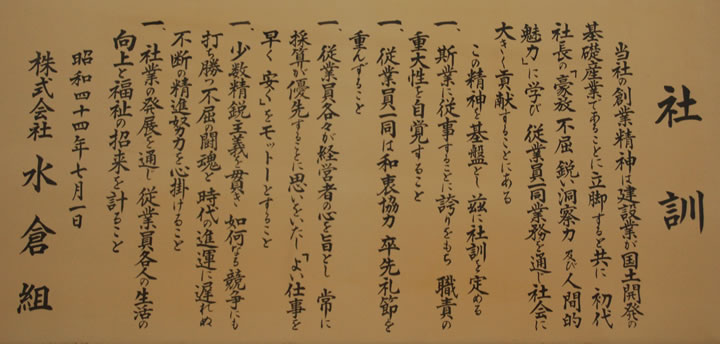 社訓
当社の創業精神は建設業が国土開発の
基礎産業であることに立脚すると共に 初代
社長の豪放 不屈 鋭い洞察力 及び人間的
魅力に学び 従業員一同業務を通じ社会に
大きく貢献することにある
この精神を基盤とし 茲に社訓を定める
一、斯業に従事することに誇りをもち 職責の
重大性を自覚すること
一、従業員一同は和衷協力 卒先礼節を
重んずること
一、従業員各々が経営者の心を旨とし 常に
採算が優先することに思いをいたし「よい仕事を
早く 安く」をモットーとすること
一、少数精鋭主義を貫き 如何なる競争にも
打ち勝つ不屈の闘魂と 時代の進運に遅れぬ
不断の精進努力を心掛けること
一、社業の発展を通し 従業員各人の生活の
向上と福祉の招来を計ること
昭和四十四年七月一日
株式会社 水倉組